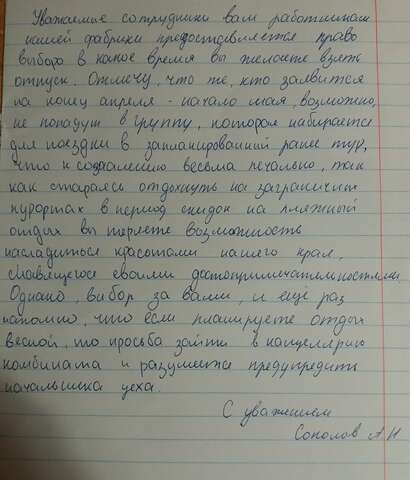 Уважаемые сотрудники вам работникам
нашей фабрики предоставляется право
выбора в какое время вы желаете взять
отпуск. Отмечу, что те, кто заявится
на конец апреля - начало мая, возможно,
не попадут в группу, которая набирается
для поездки в запланированный ранее тур,
что к сожалению весьма печально, так
как стараясь отдохнуть на заграничных
курортах в период скидок на пляжный
отдых вы теряете возможность
насладиться красотами нашего края,
славящегося своими достопримечательностями.
Однако, выбор за вами, и ещё раз
напомню, что если планируете отдых
весной, то просьба зайти в канцелярию
комбината и разумеется предупредить
начальника цеха.
С уважением
Соколов А Н